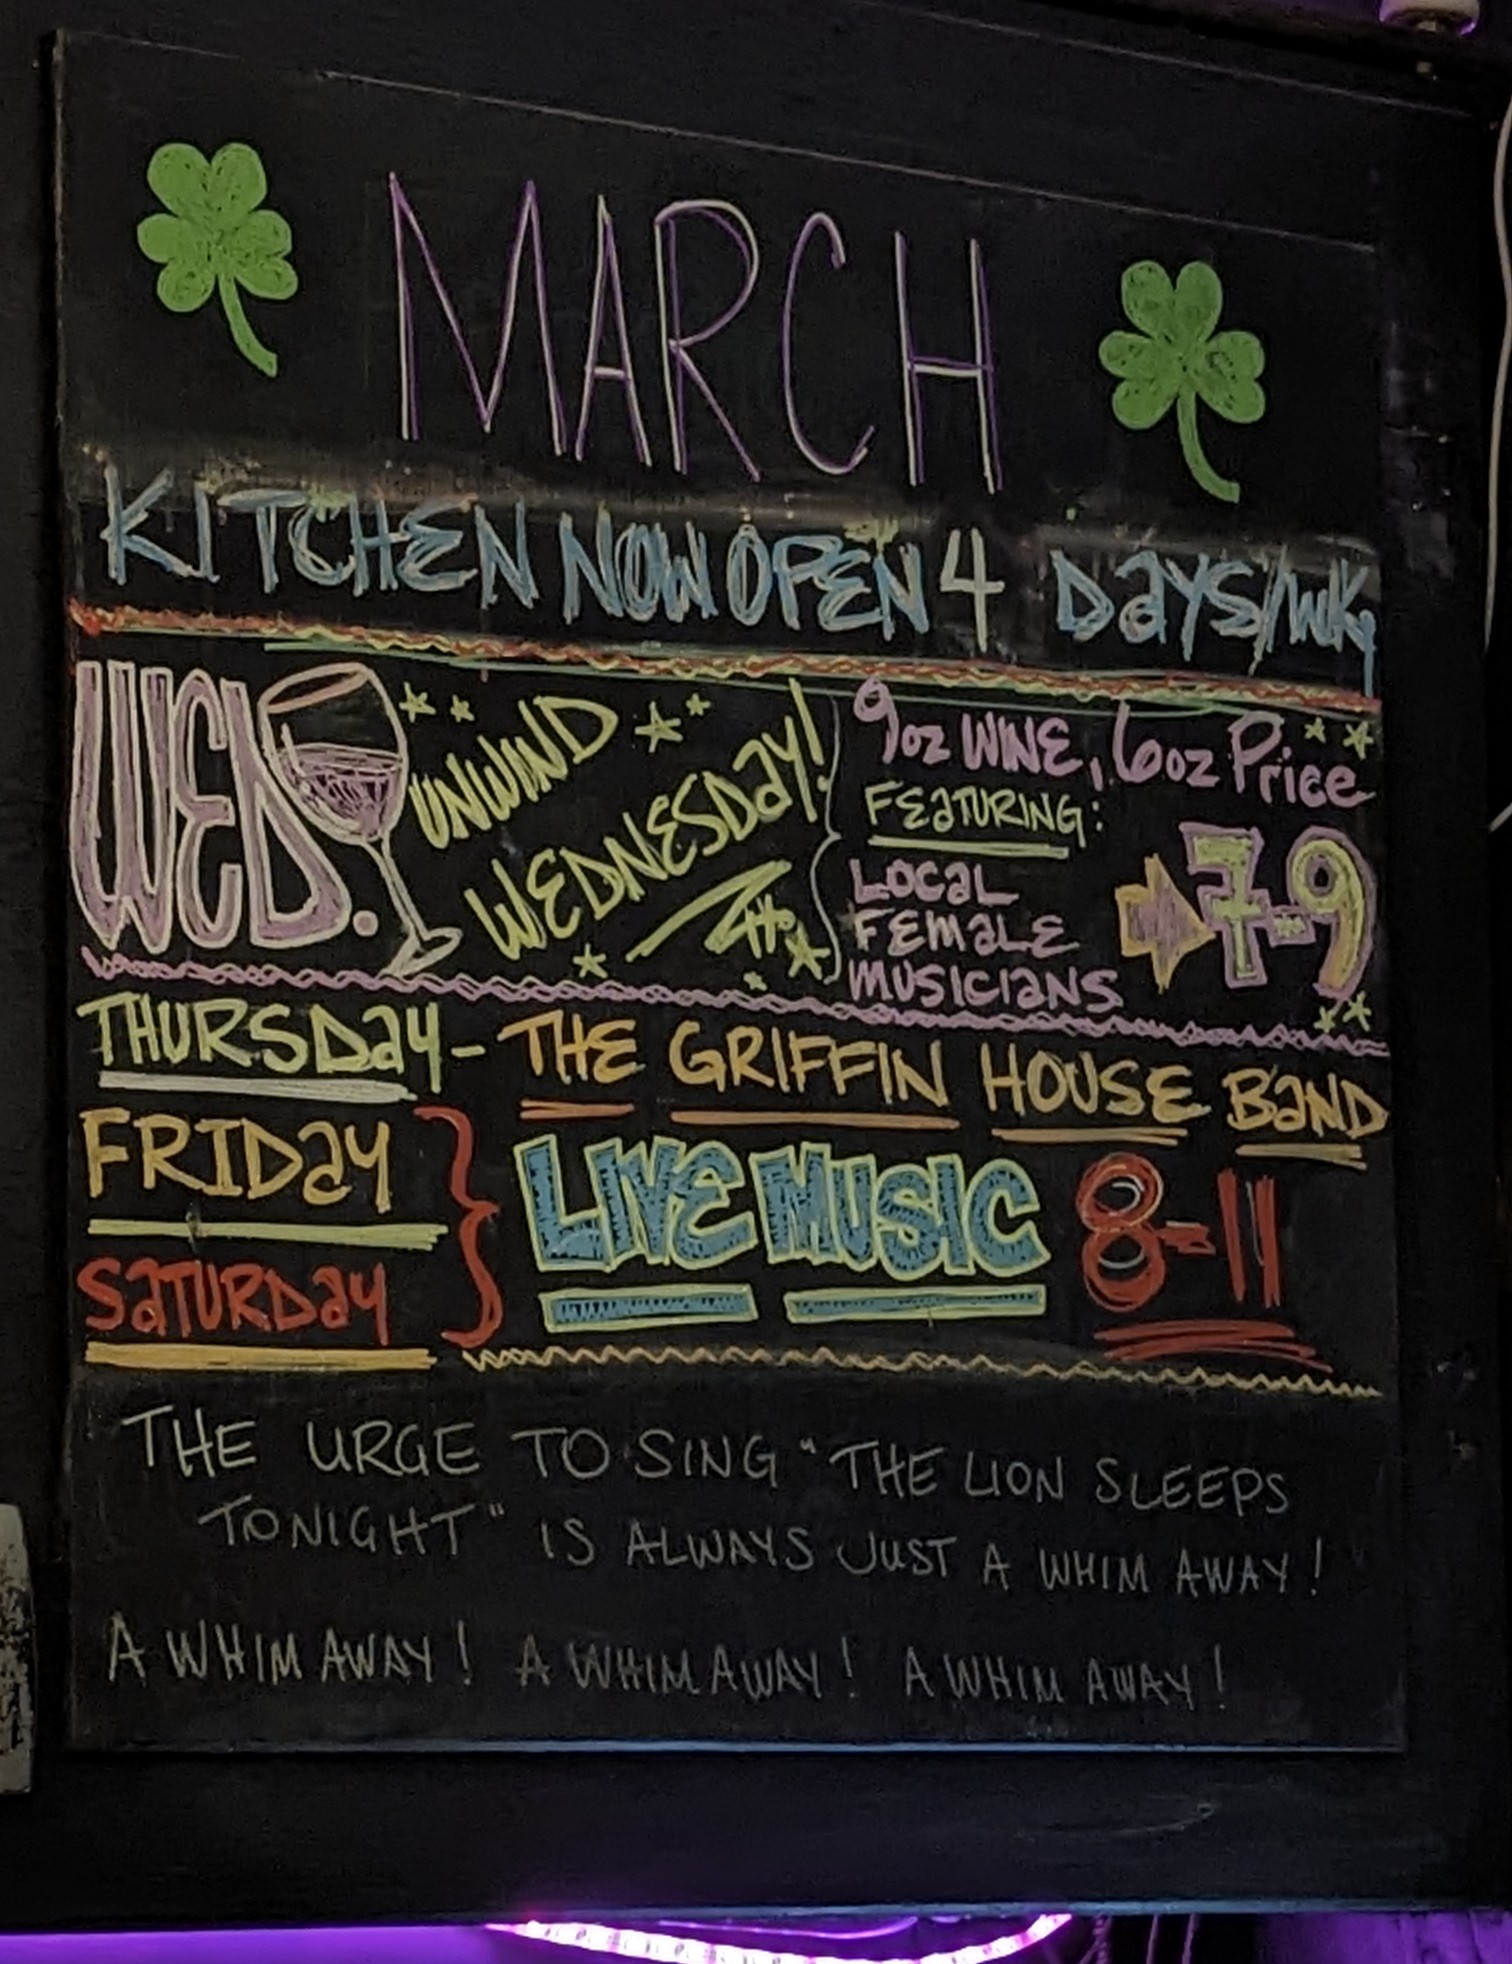 MARCH
KITCHEN NOW OPEN 4 DAYS/WK
WED.
UNWIND
WEDNESDAY!
9oz WINE, 6oz Price
FEATURING:
LOCAL
FEMALE
MUSICIANS
7-9
THURSDAY- THE GRIFFIN HOUSE BAND
FRIDAY
SATURDAY
LIVE MUSIC 8-11
THE URGE TO SING "THE LION SLEEPS
TONIGHT" IS ALWAYS JUST A WHIM AWAY!
A WHIM AWAY! A WHIM AWAY! A WHIM AWAY!